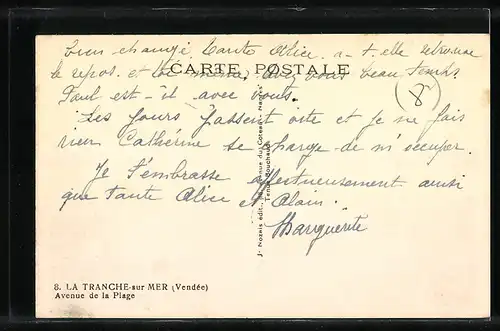 bien changé tante Alice. a-t-elle retrouvé
le repos. et toi même. avez vous beau temps
CARTE POSTALE
8
Paul est-il avec vous.
Les jours passent vite et je ne fais
rien Cathérine se charge de m'occuper.
Je t'embrasse affectueusement ainsi
que tante Alice et Alain.
Marguerite
J. Nozais édit., Avenue du Coteau - Nantes
8. LA TRANCHE-sur MER (Vendée)
Avenue de la Plage